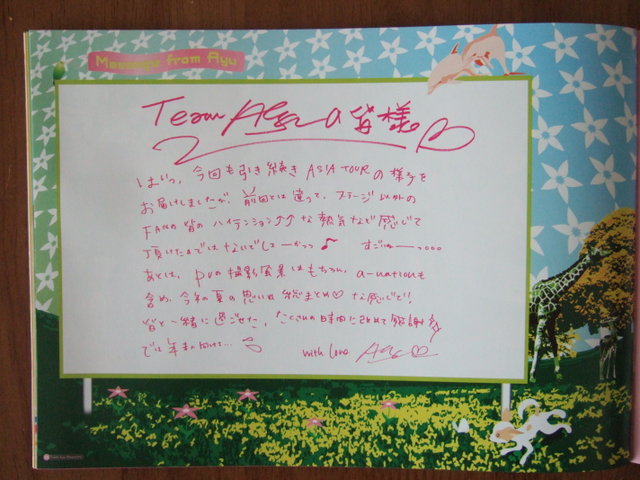 Message from Ayu
Team Ayuの皆様
はいっ、今回も引き続きASIA TOURの様子を
お届けしましたが、前回とは違って、ステージ以外の
FANの皆のハイテンション↑↑な熱気など感じて
頂けたのではないでしょーかっっ♪ すごぃゎーっ。。。
あとは、PVの撮影風景はもちろん、a-nationも
含め、今年の夏の思い出総まとめ♡な感じで!
皆と一緒に過ごせた、たくさんの時間にこめて感謝
では年末に向けて…
with love Ayu♡